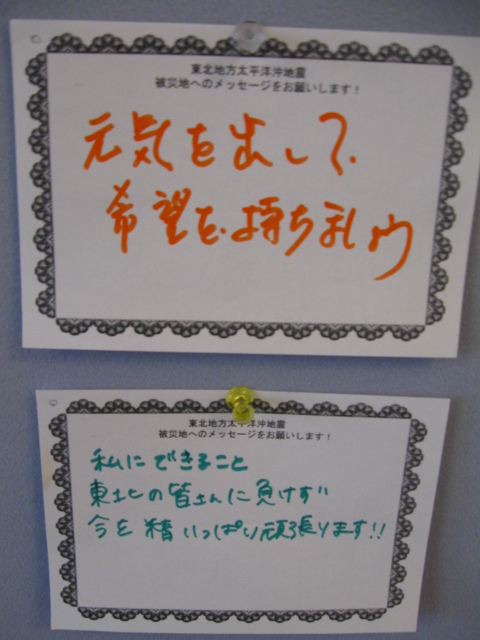 東北地方太平洋沖地震
被災地へのメッセージをお願いします！
元気を出して
希望を持ちましょう
東北地方太平洋沖地震
被災地へのメッセージをお願いします！
私にできること
東北の皆さんに負けず
今を精いっぱい頑張ります!!